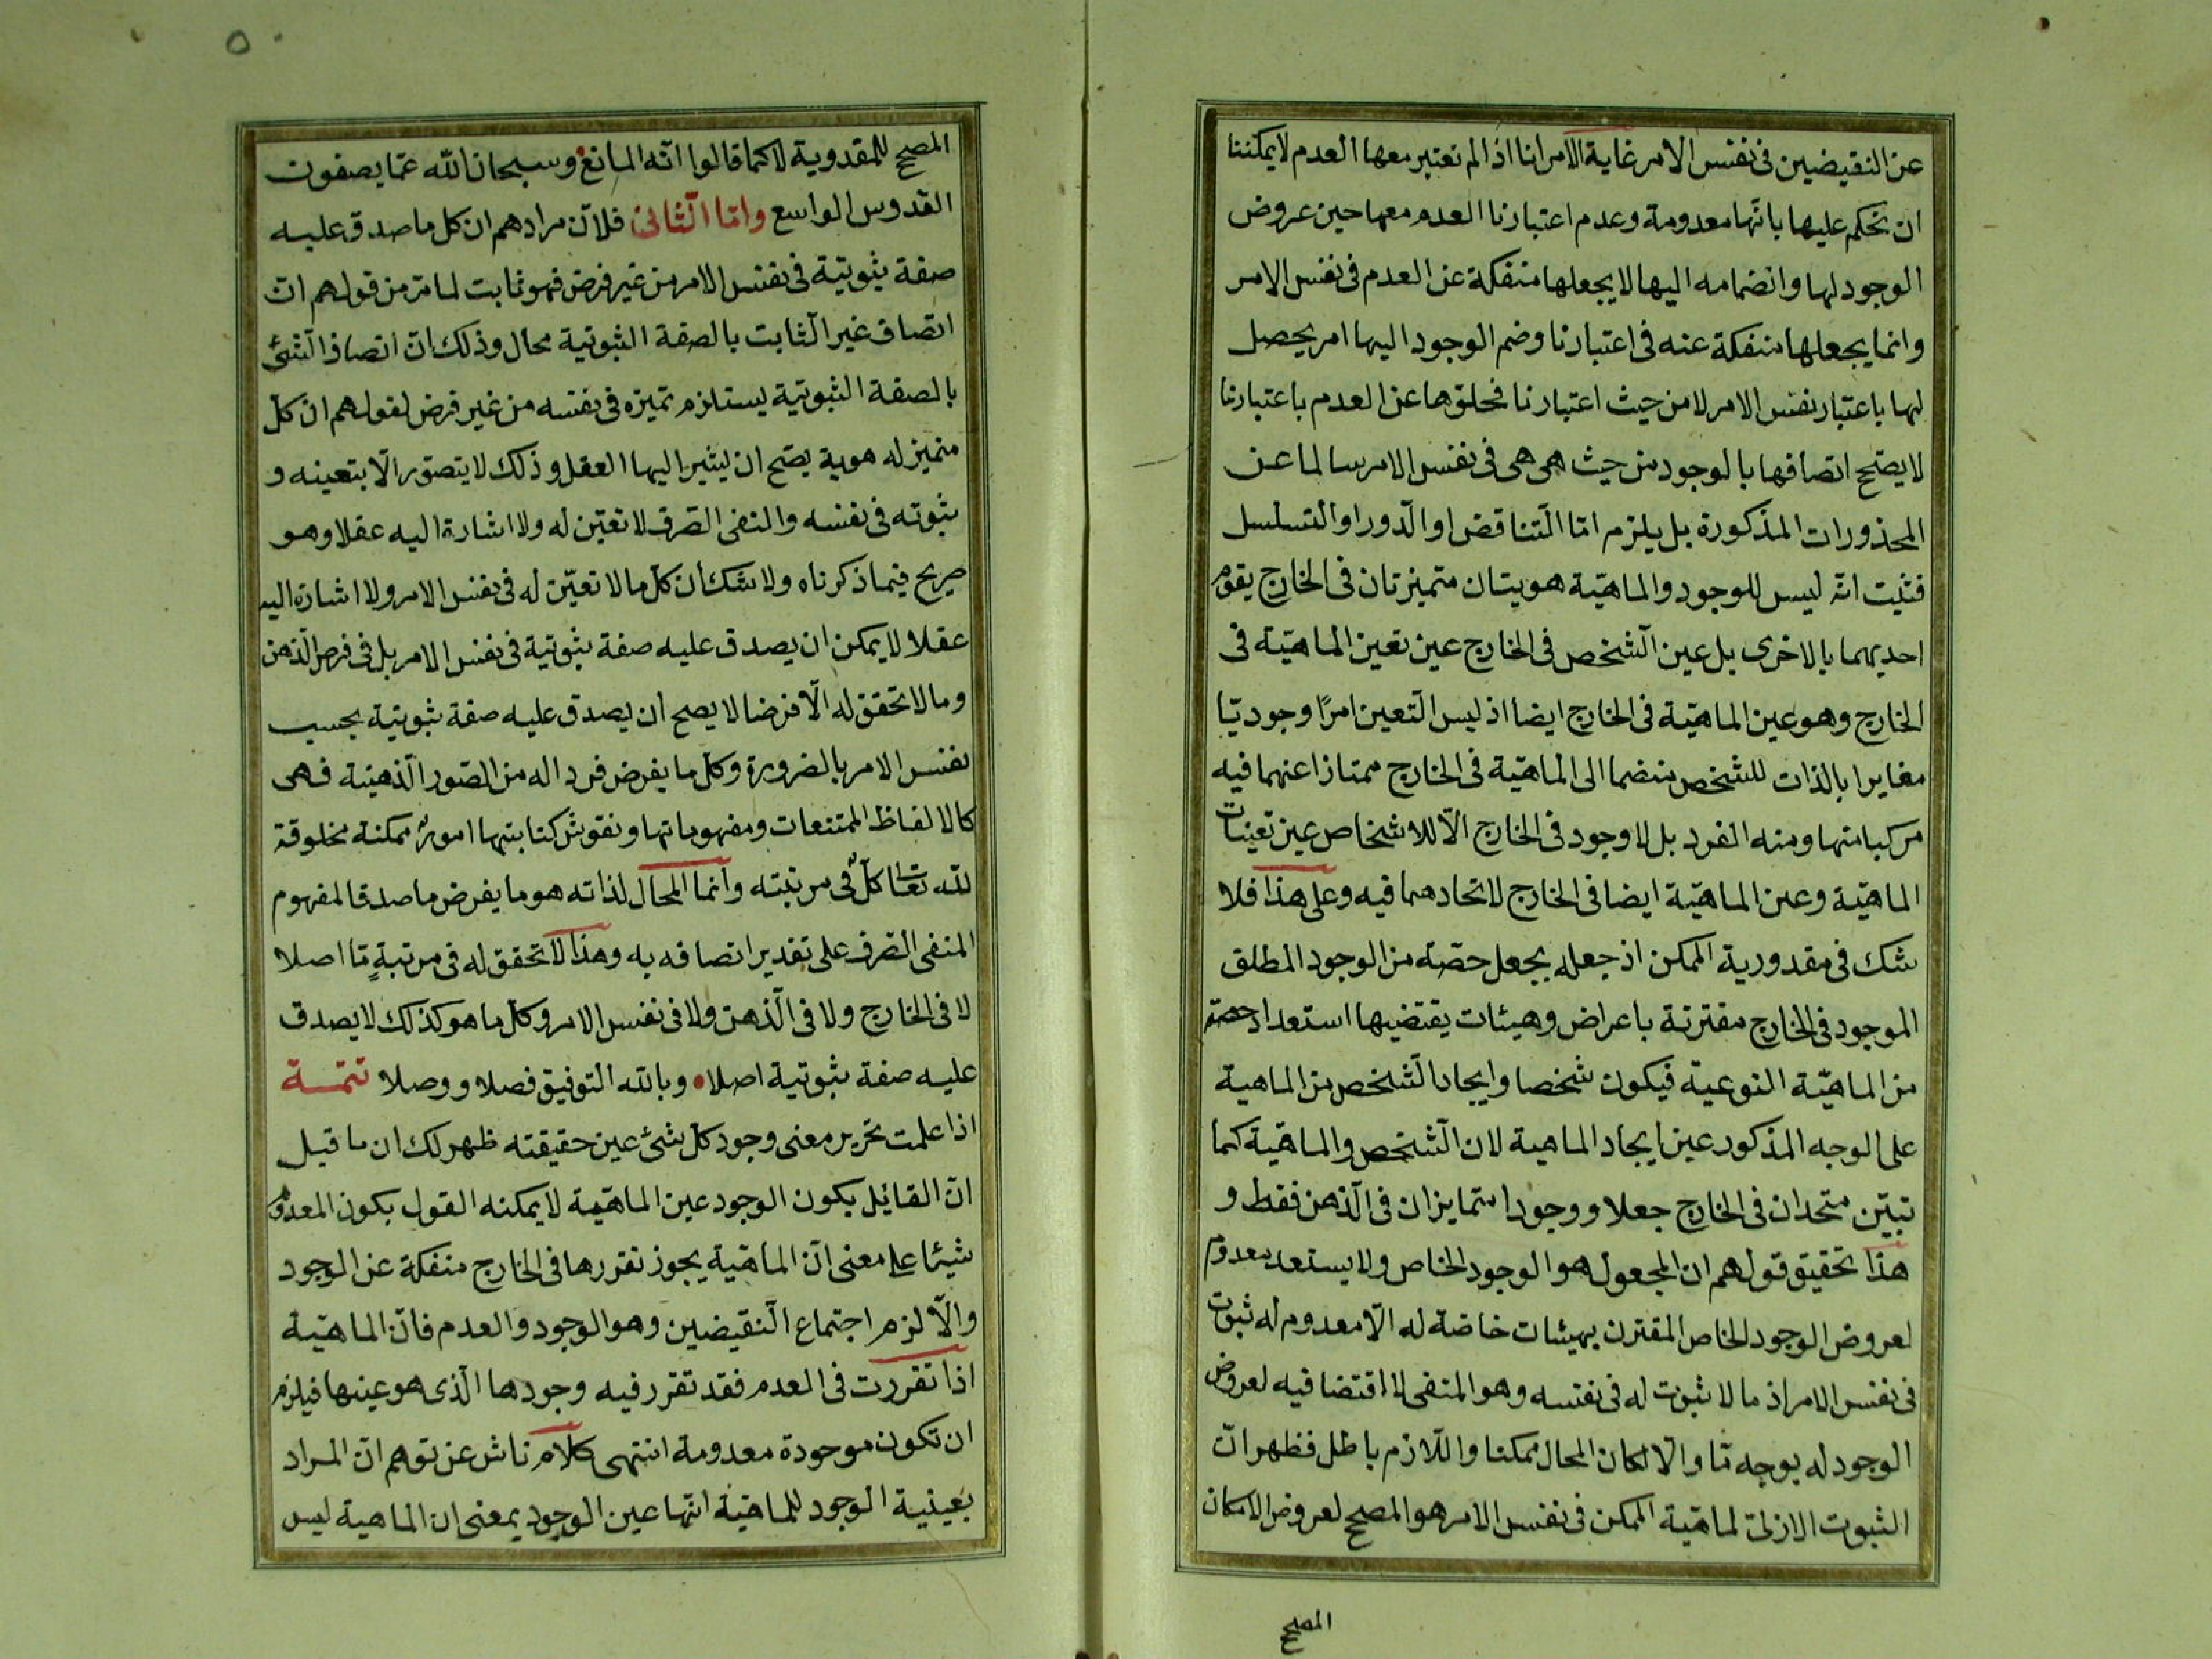 عن النقيضين فى نفس الامر غاية الامر انا اذا لم نعتبر معها العدم لا يمكننا
ان نحكم عليها بانها معدومة وعدم اعتبارنا العدم معها حين عروض
الوجود لها وانضمامه اليها لا يجعلها منفكة عن العدم فى نفس الامر
وانما يجعلها منفكة عنه فى اعتبارنا وضم الوجود اليها امر يحصل
لها باعتبار نفس الامر لا من حيث اعتبارنا فخلوها عن العدم باعتبارنا
لا يصّح اتصافها بالوجود من حيث هى هى فى نفس الامر سالما عن
المحذورات المذكورة بل يلزم امّا التّناقض او الّدور او التسلسل
فثبت انّه ليس للوجود والماهيّة هويتان متميزتان فى الخارج يقوم
احديهما بالاخرى بل عين الّشخص فى الخارج عين تعين الماهيّة فى
الخارج وهو عين الماهيّة فى الخارج ايضا اذ ليس الّتعين امرًا وجوديّا
مغايرا بالذات للشخص منضما الى الماهيّة فى الخارج ممتازا عنهما فيه
مركبا منها ومنه الفرد بل لا وجود فى الخارج الّا للاشخاص عين تعينات
الماهيّة وعين الماهيّة ايضا فى الخارج لاتحادهما فيه وعلى هذا فلا
شك فى مقدورية الممكن اذ جعله بجعل حصّة من الوجود المطلق
الموجود فى الخارج مقترنة باعراض وهيئات يقتضيها استعداد حصّته
من الماهيّة النوعيّة فيكون شخصا وايجاد الّشخص من الماهية
على الوجه المذكور عين ايجاد الماهية لان الّشخص والماهيّة كما
تبيّن متحدان فى الخارج جعلا ووجودا متمايزان فى الّذهن فقط و
هذا تحقيق قولهم ان المجعول هو الوجود الخاص ولا يستعد معدوم
لعروض الوجود الخاص المقترن بهيئات خاصّة له الّا معدوم له ثبوت
فى نفس الامر اذ ما لا ثبوت له فى نفسه وهو المنفى لا اقتضا فيه لعروض
الوجود له بوجه مّا والّا لكان المحال ممكنا واللّازم باطل فظهر انّ
الثبوت الازلىّ لماهيّة الممكن فى نفس الامر هو المصحح لعروض الامكان
المصحح
٥٠
المصحح للمقدورية لا كما قالوا انّه المانع وسبحان اللّه عمّا يصفون
القدوس الواسع وامّا الّثانى فلانّ مرادهم ان كل ما صدق عليه
صفة ثبوتيّة فى نفس الامر من غير فرض فهو ثابت لما مّر من قولهم ان
اتصاف غير الّثابت بالصفة الثبوتية محال وذلك انّ اتصاف الّشئ
بالصفة الثبوتية يستلزم تميّزه فى نفسه من غير فرض لقولهم ان كلّ
متميز له هوية يصّح ان يشير اليها العقل وذلك لا يتصوّر الّا بتعينه و
ثبوته فى نفسه والنفى الصّرف لا تعيّن له ولا اشارة اليه عقلا وهو
صريح فيما ذكرناه ولا شك ان كلّ ما لا تعيّن له فى نفس الامر ولا اشارة اليه
عقلا لا يمكن ان يصدق عليه صفة ثبوتية فى نفس الامر بل فى فرض الّذهن
وما لا تحقق له الّا فرضا لا يصح ان يصدق عليه صفة ثبوتية بحسب
نفس الامر بالضرورة وكلّ ما يفرض فردا له من الصّور الّذهنية فهى
كالالفاظ الممتنعات ومفهوماتها ونقوش كتابتها امور ممكنة مخلوقة
للّه تعالى كلّ فى مرتبته وانما المحال لذاته هو ما يفرض ما صدقا لمفهوم
المنفى الصّرف على تقدير اتصافه به وهذا لا تحقق له فى مرتبةٍ مّا اصلا
لا فى الخارج ولا فى الّذهن ولا فى نفس الامر وكل ما هو كذلك لا يصدق
عليه صفة ثبوتية اصلا وباللّه التوفيق فصلا ووصلا تتمّــة
اذا علمت تحرير معنى وجود كلّ شئ عين حقيقته ظهر لك ان ما قيل
انّ القائل بكون الوجود عين الماهيّة لا يمكنه القول بكون المعدوم
شيئا على معنى انّ الماهّية يجوز تقررها فى الخارج منفكة عن الوجود
والّا لزم اجتماع الّنقيضين وهو الوجود والعدم فانّ الماهيّة
اذا تقررت فى العدم فقد تقرر فيه وجودها الّذى هو عينها فيلزم
ان تكون موجودة معدومة انتهى كلام ناش عن توهم انّ المراد
بعينية الوجود للماهيّة انها عين الوجود بمعنى ان الماهية ليس